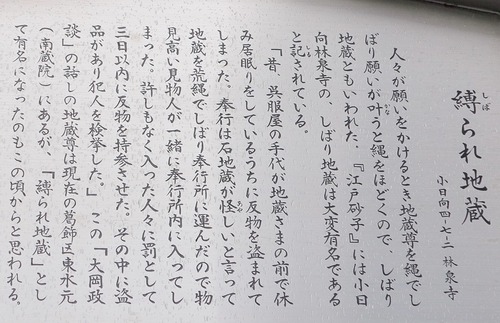 縛られ地蔵
しば
小日向四-七-二 林泉寺
人々が願いをかけるとき地蔵尊を縄でし
ばり願いが叶うと縄をほどくので、しばり
かな
地蔵ともいわれた。『江戸砂子』には小日
向林泉寺の、しばり地蔵は大変有名である
と記されている。
「昔、呉服屋の手代が地蔵さまの前で休
み居眠りをしているうちに反物を盗まれて
しまった。奉行は石地蔵が怪しいと言って
あや
地蔵を荒縄でしばり奉行所に運んだので物
見高い見物人が一緒に奉行所内に入ってし
まった。許しもなく入った人々に罰として
三日以内に反物を持参させた。その中に盗
品があり犯人を検挙した。」この「大岡政
談」の話しの地蔵尊は現在の葛飾区東水元
(南蔵院)にあるが、「縛られ地蔵」とし
て有名になったのもこの頃からと思われる。